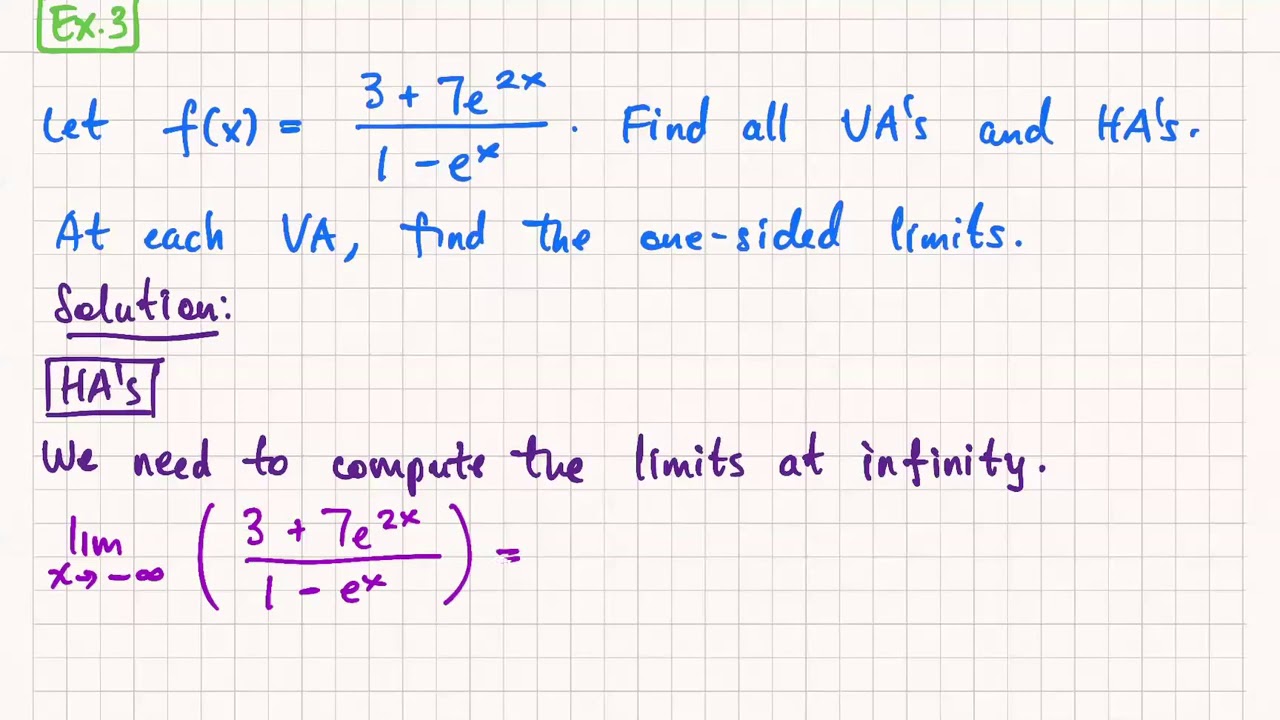 Ex.3
Let f(x) = (3 + 7e^{2x})/(1 - e^x). Find all VA's and HA's.
At each VA, find the one-sided limits.
Solution:
HA's
We need to compute the limits at infinity.
lim_{x→-∞} ((3 + 7e^{2x})/(1 - e^x)) =